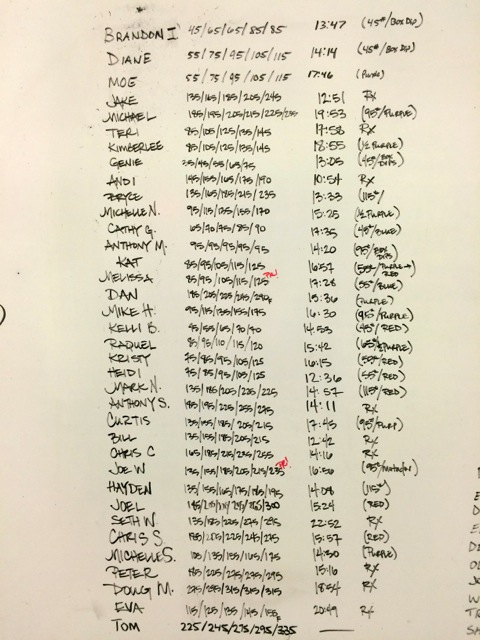 BRANDON I 45/65/65/85/85 13:47 (45#/BOX DIP)
DIANE 55/75/95/105/115 14:14 (45#/BOX DIP)
MOE 55/75/95/105/115 17:46
JAKE 135/165/185/205/245 12:51 Rx
MICHAEL 185/195/205/215/225/235 19:53 (95#/PURPLE)
TERI 85/105/125/135/145 17:58 Rx
KIMBERLEE 85/105/125/135/145 18:55 (1/2 PURPLE)
GENIE 35/45/55/65/75 13:05 (45#/BOX DIPS)
ANDI 145/155/165/175/190 10:54 Rx
BRYCE 135/165/185/215/235 13:33 (115#)
MICHELLE N. 95/115/135/155/170 15:25 (1/2 PURPLE)
CATHY G. 65/70/75/85/90 17:35 (45#/BLUE)
ANTHONY M. 95/95/95/95/95 14:20 (95#/BOX DIPS)
KAT 85/95/105/115/125 16:57 RED
MELISSA 85/95/105/115/125 PR! 17:28 (55#/BLUE)
DAN 185/205/225/245/290 15:36 (PURPLE)
MIKE H. 95/115/135/155/175 16:30 (95#/PURPLE)
KELLI B. 45/55/65/70/70 14:53 (45#/RED)
RAQUEL 85/95/110/115/120 15:42 (65#/PURPLE)
KRISTY 75/85/95/105/125 16:15 (55#/RED)
HEIDI 75/85/95/105/125 12:36 (55#/RED)
MARK N. 135/185/205/225/225 14:57 (115#/RED)
ANTHONY S. 185/195/225/255/275 14:11 Rx
CURTIS 135/155/185/205/215 17:45 (95#/PURP)
BILL 135/155/185/205/215 12:42 Rx
CHRIS C 165/185/215/235/255 14:16 Rx
JOE W 135/155/185/205/215/235 PR! 16:50
HAYDEN 135/155/165/175/185/195 14:08 (115#)
JOEL 300 15:24 (RED)
SETH W. 135/185/225/275/295 22:52 Rx
CHRIS S 185/205/225/245/275 15:57 (RED)
MICHELLE S. 105/135/155/165/175 14:50 (PURPLE)
PETER 185/205/275/295/295 15:16 Rx
DOUG M. 275/295/315/315/315 18:54 Rx
EVA 115/125/135/145/155 20:49 Rx
TOM 225/245/275/295/335 —